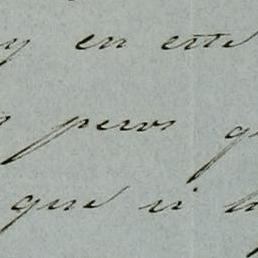 y en este
pero
que si